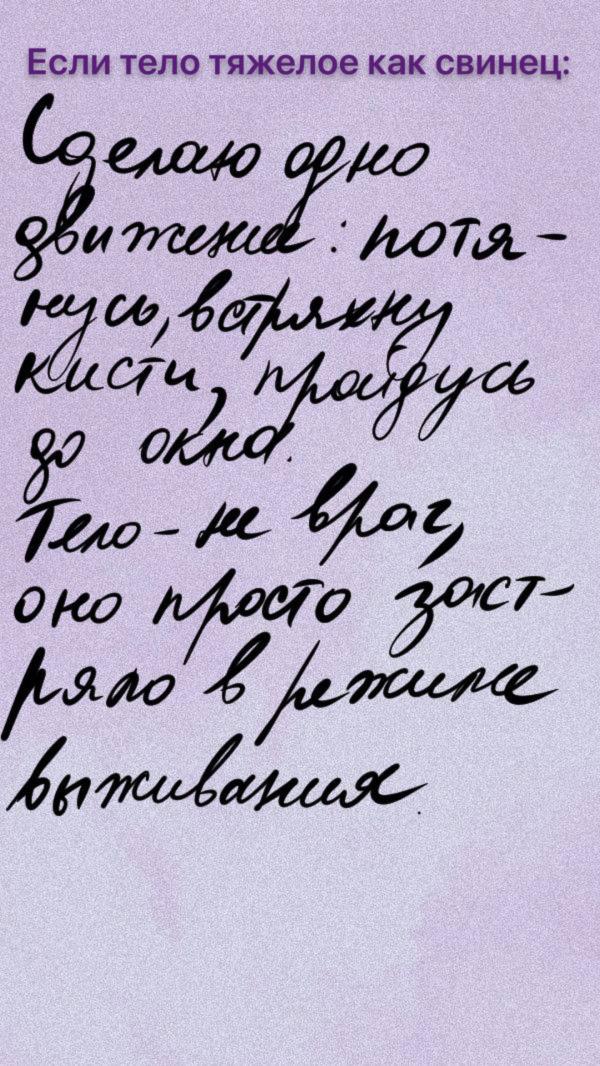 Если тело тяжелое как свинец:
Сделаю одно
движение: потя-
нусь, встряхну
кисти, пройдусь
до окна.
Тело - не враг,
оно просто заст-
ряло в режиме
выживания.